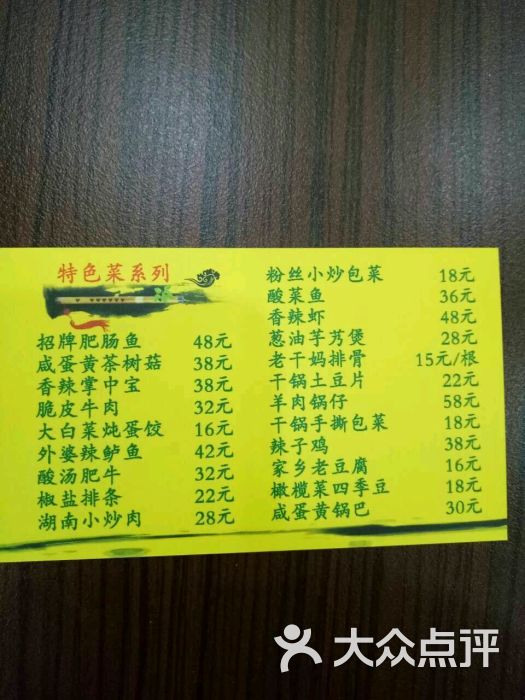 特色菜系列
招牌肥肠鱼 48元
咸蛋黄茶树菇 38元
香辣掌中宝 38元
脆皮牛肉 32元
大白菜炖蛋饺 16元
外婆辣鲈鱼 42元
酸汤肥牛 32元
椒盐排条 22元
湖南小炒肉 28元
粉丝小炒包菜 18元
酸菜鱼 36元
香辣虾 48元
葱油芋艿煲 28元
老干妈排骨 15元/根
干锅土豆片 22元
羊肉锅仔 58元
干锅手撕包菜 18元
辣子鸡 38元
家乡老豆腐 16元
橄榄菜四季豆 18元
咸蛋黄锅巴 30元
大众点评